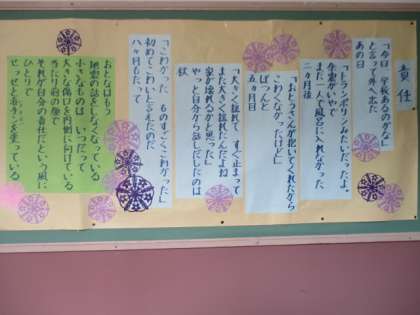 責任
「今日 学校あるのかな」
と言って外へ出た
あの日
「トランポリンみたいだったよ」
余震がいやで
また一人で風呂に入れなかった
二ヵ月後
「おとうさんが抱いてくれたから
こわくなかったけど」
ぽつんと
五ヵ月目
「大きく揺れて すぐ止まって
また大きく揺れたんだよね
家が壊れるかと思った」
やっと自分から話しだしたのは
秋
「こわかった ものすごくこわかった」
初めてこわいと言えたのだ
八ヶ月もたって
おとなはもう
地震の話をしなくなっている
小さなものは いつだって
大きな傷口を内側に向けている
当たり前の顔で
それが自分の責任だという風に
ひとりで
せっせと